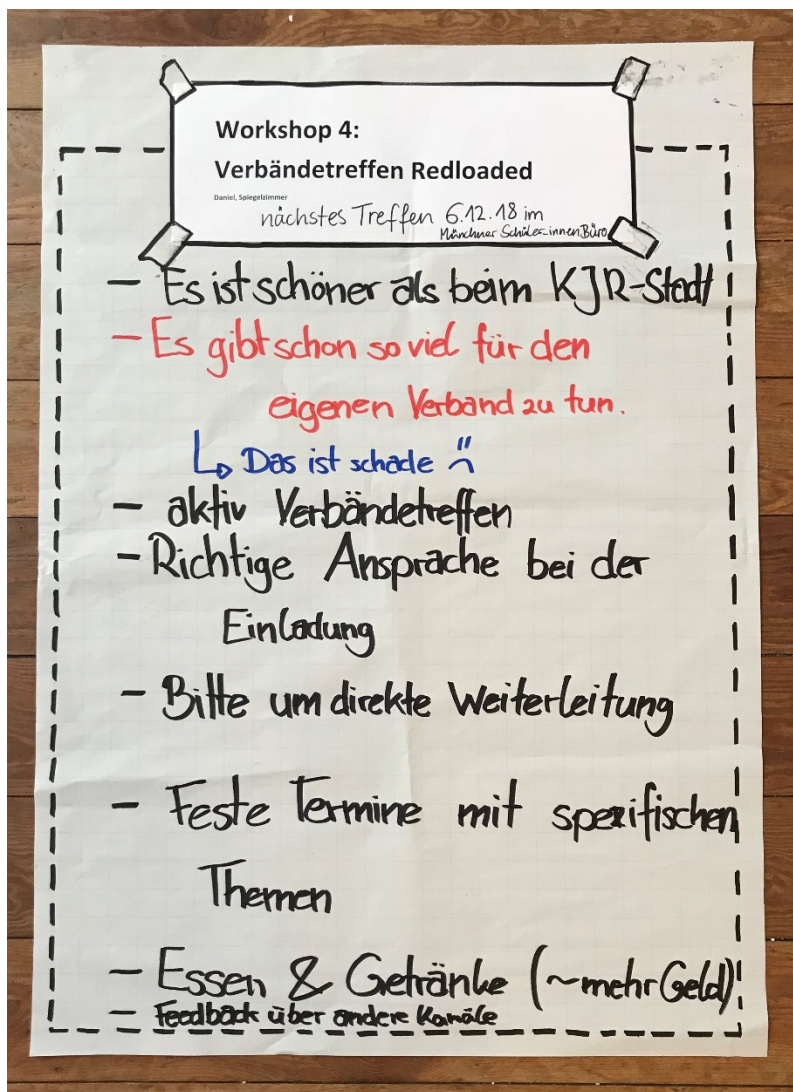 Workshop 4:
Verbändetreffen Redloaded
Daniel, Spiegelzimmer
nächstes Treffen 6.12.18 im
Münchner Schüler_innen Büro
- Es ist schöner als beim KJR-Stadt
- Es gibt schon so viel für den
eigenen Verband zu tun.
↳ Das ist schade :(
- aktiv Verbändetreffen
- Richtige Ansprache bei der
Einladung
- Bitte um direkte Weiterleitung
- Feste Termine mit spezifischen
Themen
- Essen & Getränke (~mehr Geld)
- Feedback über andere Kanäle